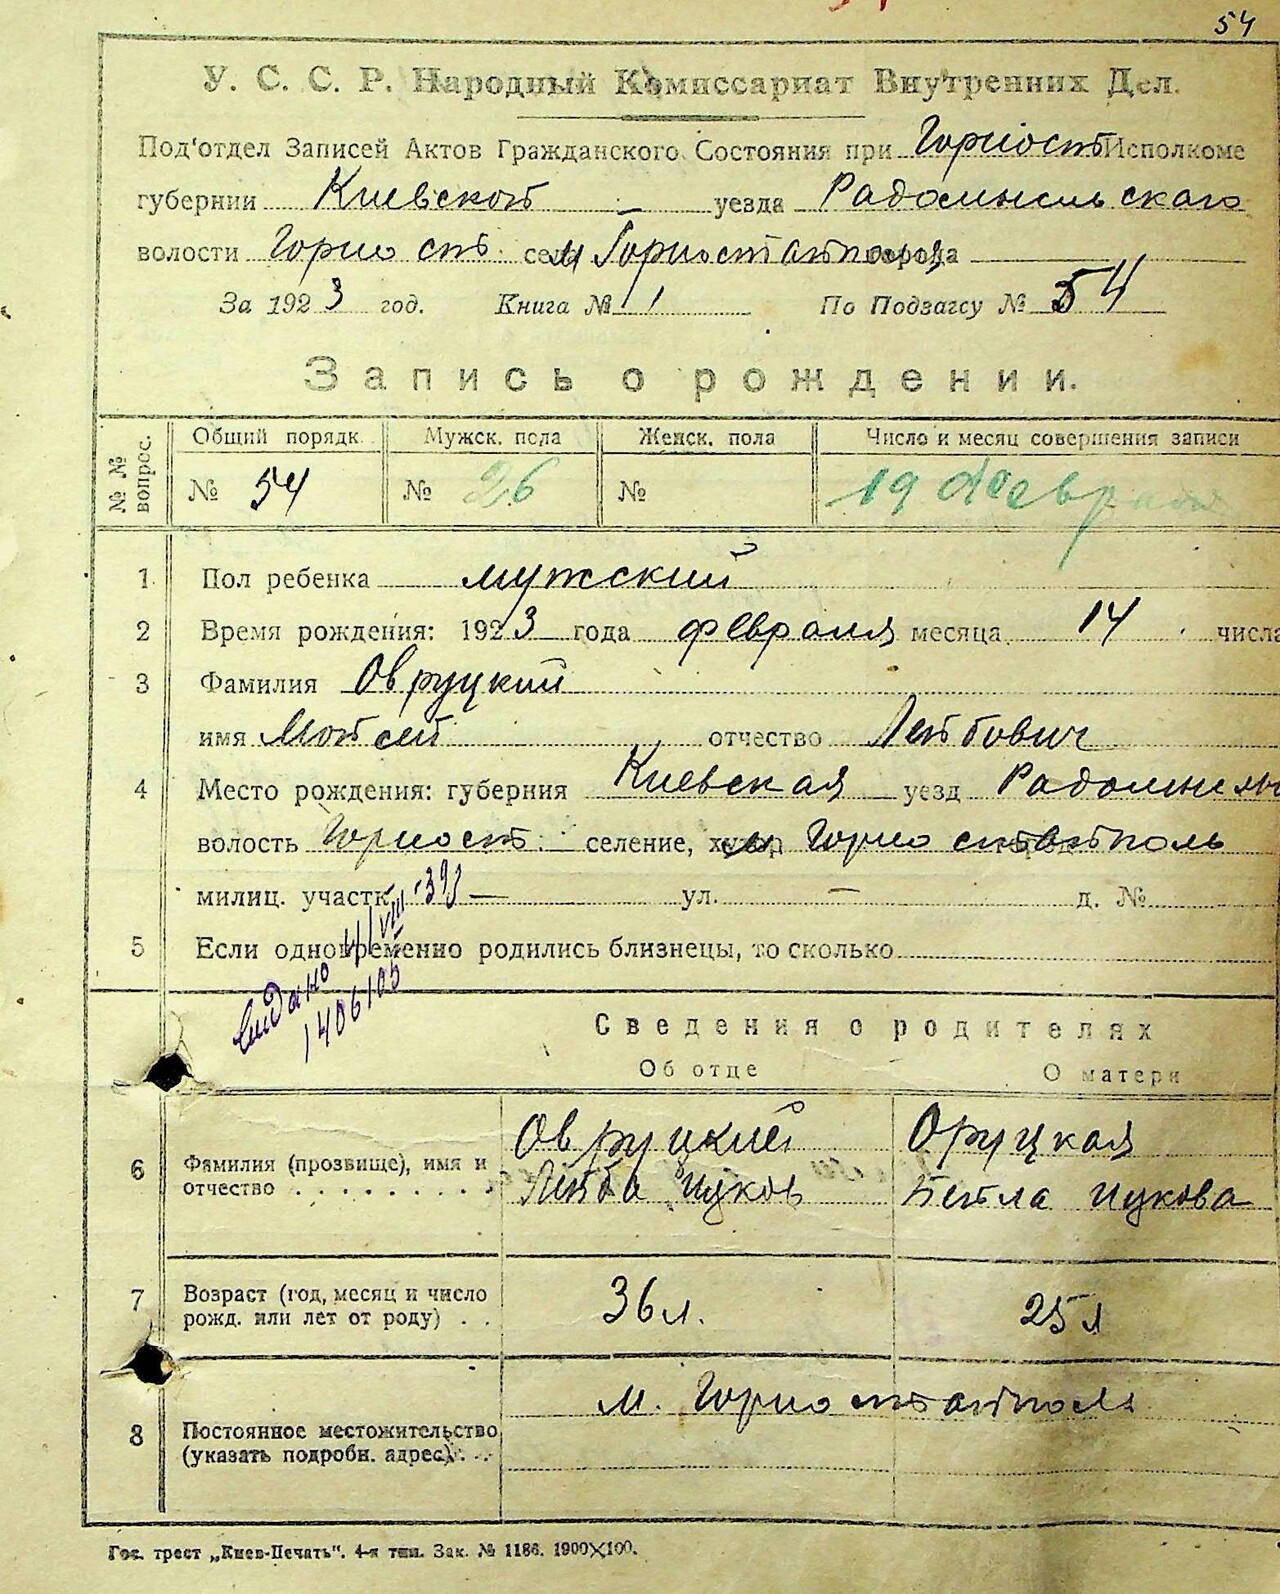 54
У. С. С. Р. Народный Комиссариат Внутренних Дел.
Под'отдел Записей Актов Гражданского Состояния при Горност Исполкоме
губернии Киевской уезда Радомысльскаго
волости Горност. села м Горностайполя города
За 1923 год. Книга № 1 По Подзагсу № 54
Запись о рождении.
№ № вопрос.
Общий порядк. Мужск. пола Женск. пола Число и месяц совершения записи
№ 54 № 26 № 19 Февраля
1 Пол ребенка мужской
2 Время рождения: 1923 года февраля месяца 14 числа
3 Фамилия Овруцкий
имя Мойсей отчество Лейбович
4 Место рождения: губерния Киевская уезд Радомысль
волость Горност. селение, хутор м Горностайполь
милиц. участк. — ул. — д. №
5 Если одновременно родились близнецы, то сколько
Видано 4/VIII-39
1406105
Сведения о родителях
Об отце О матери
6 Фамилия (прозвище), имя и отчество
Овруцкий Оруцкая
Лейба Ицков Бейла Ицкова
7 Возраст (год, месяц и число рожд. или лет от роду)
36 л. 25 л
8 Постоянное местожительство (указать подробн. адрес)
м. Горностайполь
Гос. трест „Киев-Печать". 4-я тип. Зак. № 1186. 1900×100.